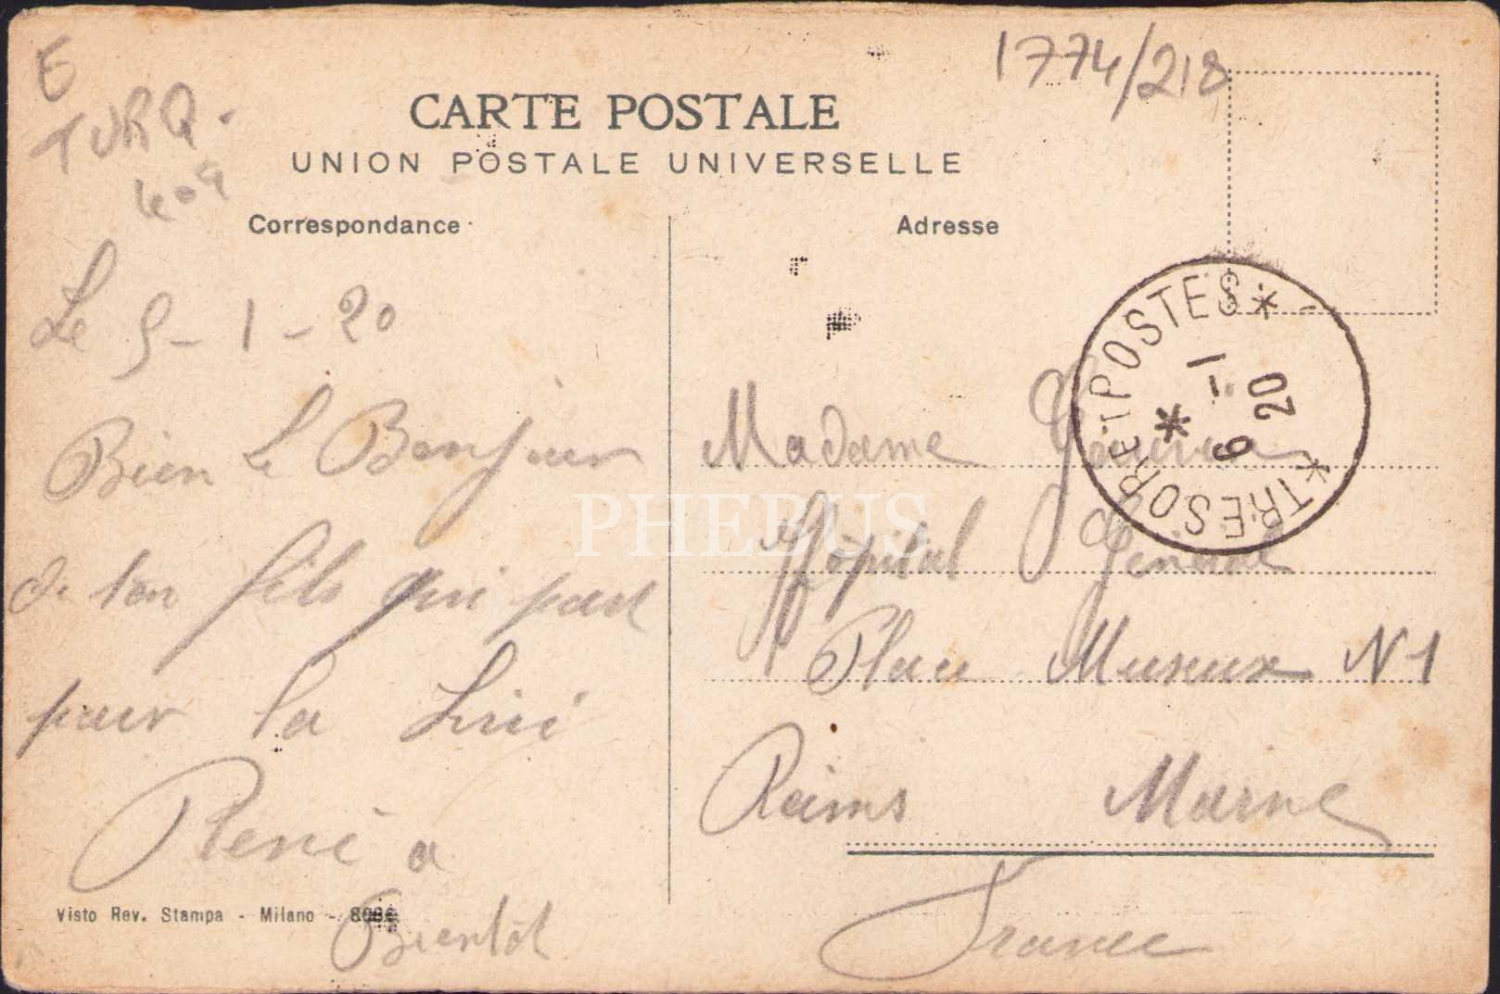 E
TURQ.
409
1774/218
CARTE POSTALE
UNION POSTALE UNIVERSELLE
Correspondance
Adresse
Le 5-1-20
Bien le Bonjour
de ton fils qui part
pour la
René a
Bientôt
Visto Rev. Stampa - Milano -
Madame
Hôpital Général
Place Museux N1
Reims Marne
France
TRESOR ET POSTES
6 -1
20
PHEBUS